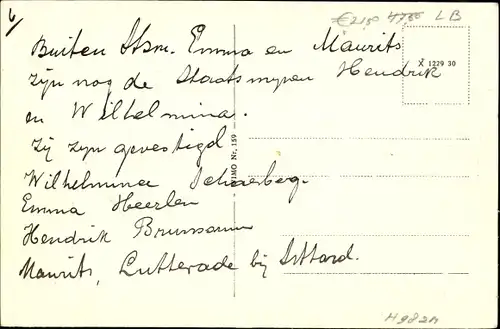 €2,50 LB
Buiten Stsm. Emma en Maurits
X 1229 30
zijn nog de Staatsmijnen Hendrik
en Wilhelmina.
Zij zijn gevestigd
Wilhelmina Schaesberg
Emma Heerlen
Hendrik Brunssum
Maurits, Lutterade bij Sittard.
Nr. 159
H982A